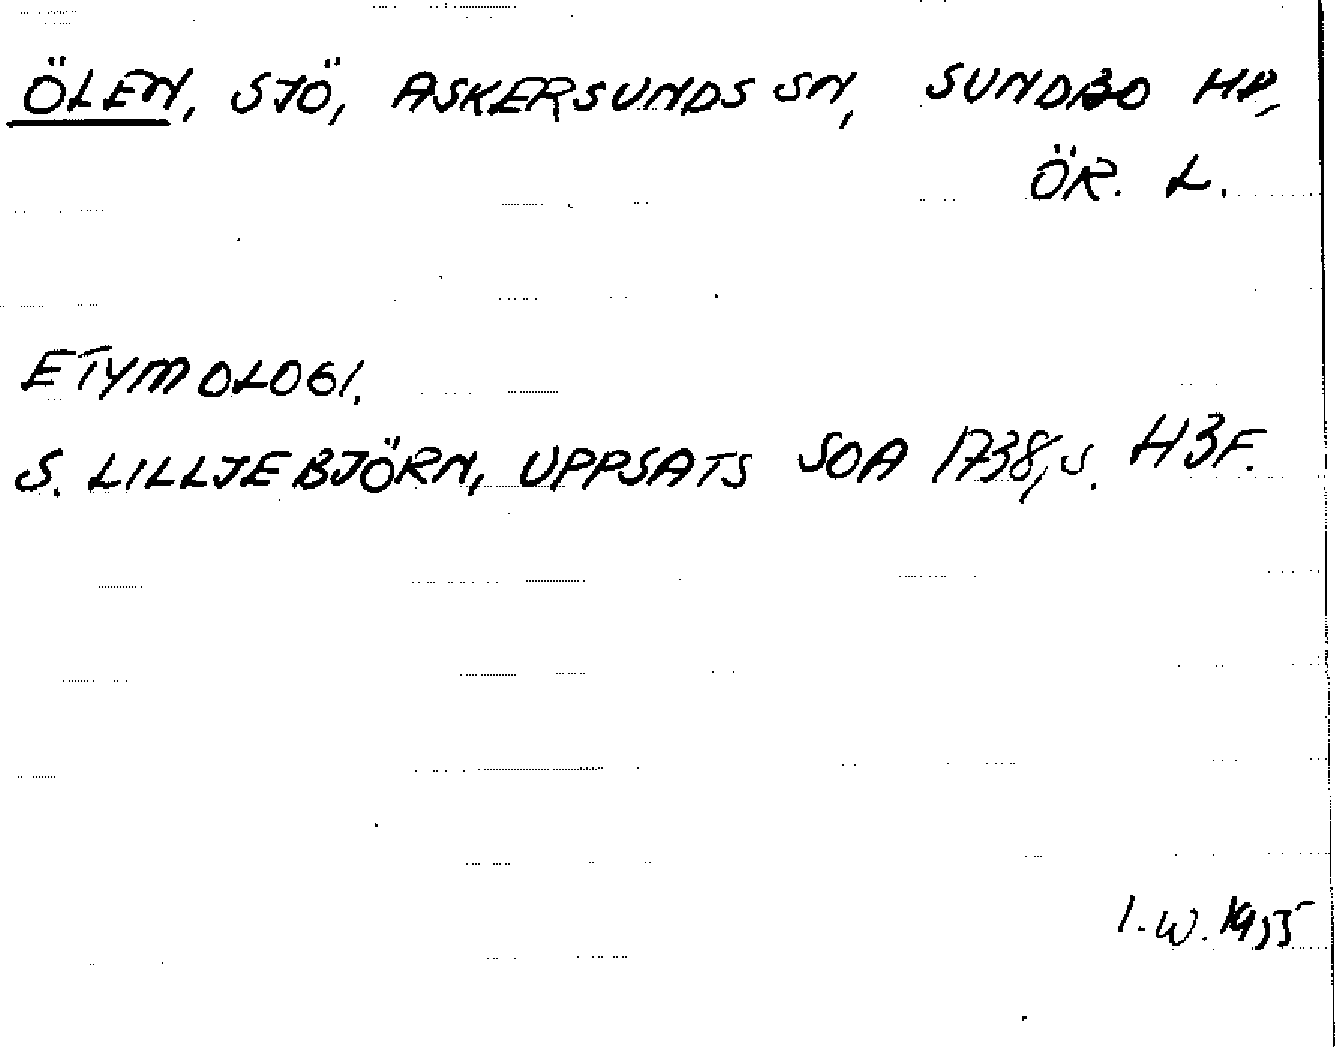 ÖLEN, SJÖ, ASKERSUNDS SN, SUNDBO HD,
ÖR. L.
ETYMOLOGI.
S. LILLJEBJÖRN, UPPSATS SOA 1738, S. H3F.
I.W. 1955